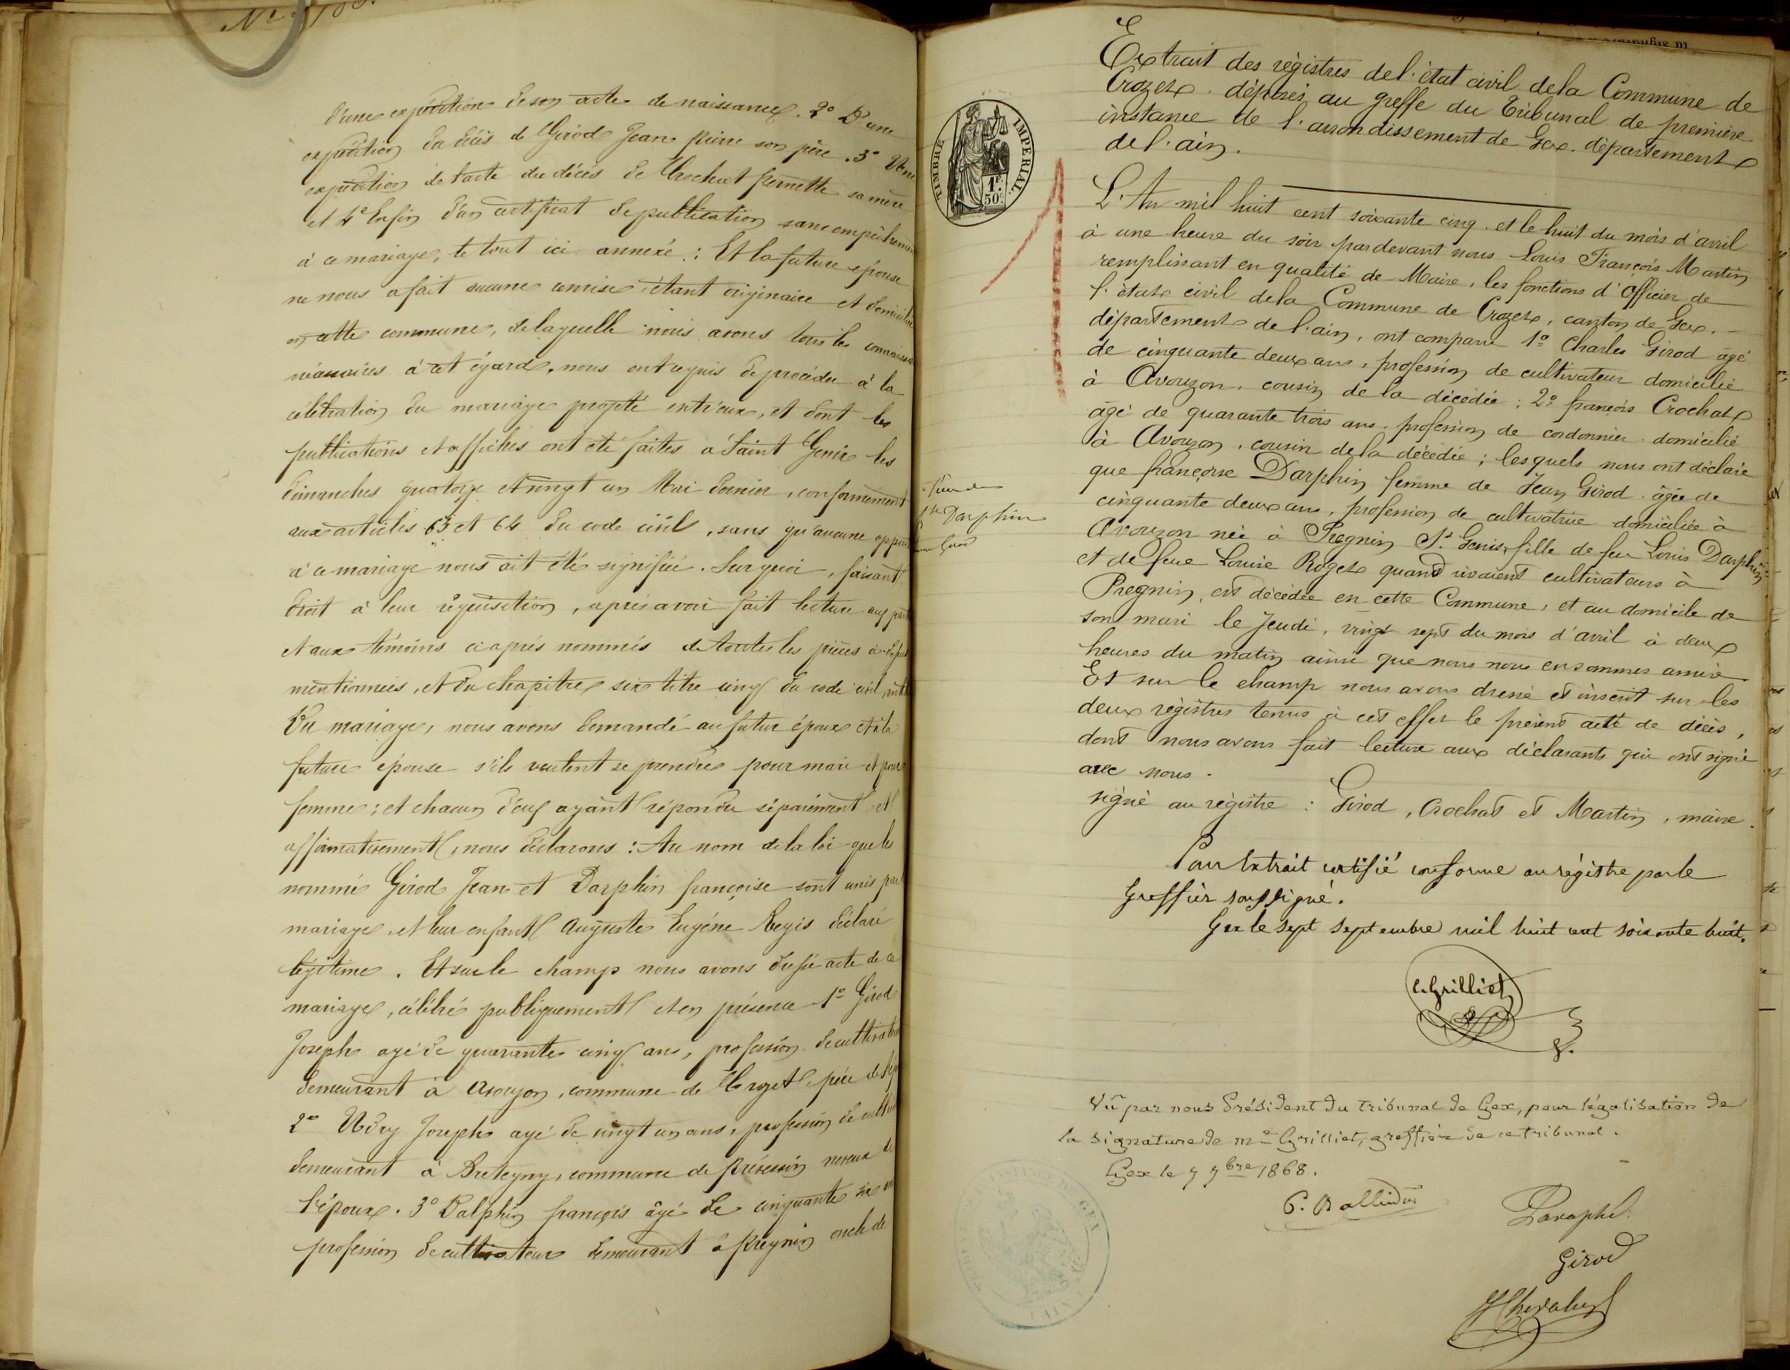 d'une expédition de son acte de naissance. 2º D'une
expédition du décès de Girod Jean pierre son père. 3º D'une
expédition de l'acte du décès de Crochat pernette sa mère
et 4º Enfin d'un certificat de publication sans empêchement
à ce mariage; le tout ici annexé: Et la future épouse
ne nous a fait aucune remise étant originaire et domiciliée
en cette commune, de laquelle nous avons tous les
nécessaires à cet égard, nous ont requis de procéder à la
célébration du mariage projeté entr'eux, et dont les
publications et affiches ont été faites à Saint Genis les
dimanches quatorze et vingt un Mai dernier, conformément
aux articles 63 et 64 du code civil, sans qu'aucune
à ce mariage nous ait été signifiée. Sur quoi, faisant
droit à leur réquisition, après avoir fait lecture aux
et aux témoins ci après nommés de toutes les pièces
mentionnées, et du chapitre six titre cinq du code civil,
Du mariage, nous avons demandé au futur époux et à la
future épouse s'ils veulent se prendre pour mari et pour
femme; et chacun d'eux ayant répondu séparément et
affirmativement, nous déclarons: Au nom de la loi que les
nommé Girod Jean et Darphin françoise sont unis par
mariage, et leur enfant Auguste Eugène Regis déclaré
légitime. Et sur le champ nous avons dressé acte de ce
mariage, célébré publiquement et en présence 1º Girod
Joseph agé de quarante cinq ans, profession de cultivateur
demeurant à Avouzon, commune de Crozet
2º Udry Joseph agé de vingt un ans, profession de
demeurant à Bretigny, commune de prévessin neveu de
l'époux. 3º Dalphin françois âgé de cinquante six
profession de cultivateur demeurant à Prégnin oncle de
TIMBRE IMPERIAL
1F
50c
Extrait des régistres de l'état civil de la Commune de
Crozet déposés au greffe du Tribunal de première
instance de l'arrondissement de Gex. département
de l'ain.
L'An mil huit cent soixante cinq et le huit du mois d'avril
à une heure du soir pardevant nous Louis François Martin
remplissant en qualité de Maire, les fonctions d'Officier de
l'état civil de la Commune de Crozet, canton de Gex,
département de l'ain, ont comparu 1º Charles Girod âgé
de cinquante deux ans, profession de cultivateur domicilié
à Avouzon, cousin de la décédée; 2º françois Crochat
âgé de quarante trois ans profession de cordonnier domicilié
à Avouzon, cousin de la décédée; lesquels nous ont déclaré
que françoise Darphin femme de Jean Girod âgée de
cinquante deux ans, profession de cultivatrice domiciliée à
Avouzon née à Pregnin St Genis, fille de feu Louis Darphin
et de feue Louise Rozet quand vivaient cultivateurs à
Pregnin, est décédée en cette Commune, et au domicile de
son mari le Jeudi, vingt sept du mois d'avril à deux
heures du matin ainsi que nous nous en sommes assuré
Et sur le champ nous avons dressé et inscrit sur les
deux régistres tenus à cet effet le présent acte de décès,
dont nous avons fait lecture aux déclarants qui ont signé
avec nous.
signé au régistre: Girod, Crochat et Martin, maire.
Darphin
Girod
Pour Extrait certifié conforme au régistre par le
Greffier soussigné.
Gex le sept septembre mil huit cent soixante huit.
Grilliet
Vû par nous Président du tribunal de Gex, pour légalisation de
la signature de Me Grilliet, greffier de ce tribunal.
Gex le 7 7bre 1868.
Paraphé:
Girod